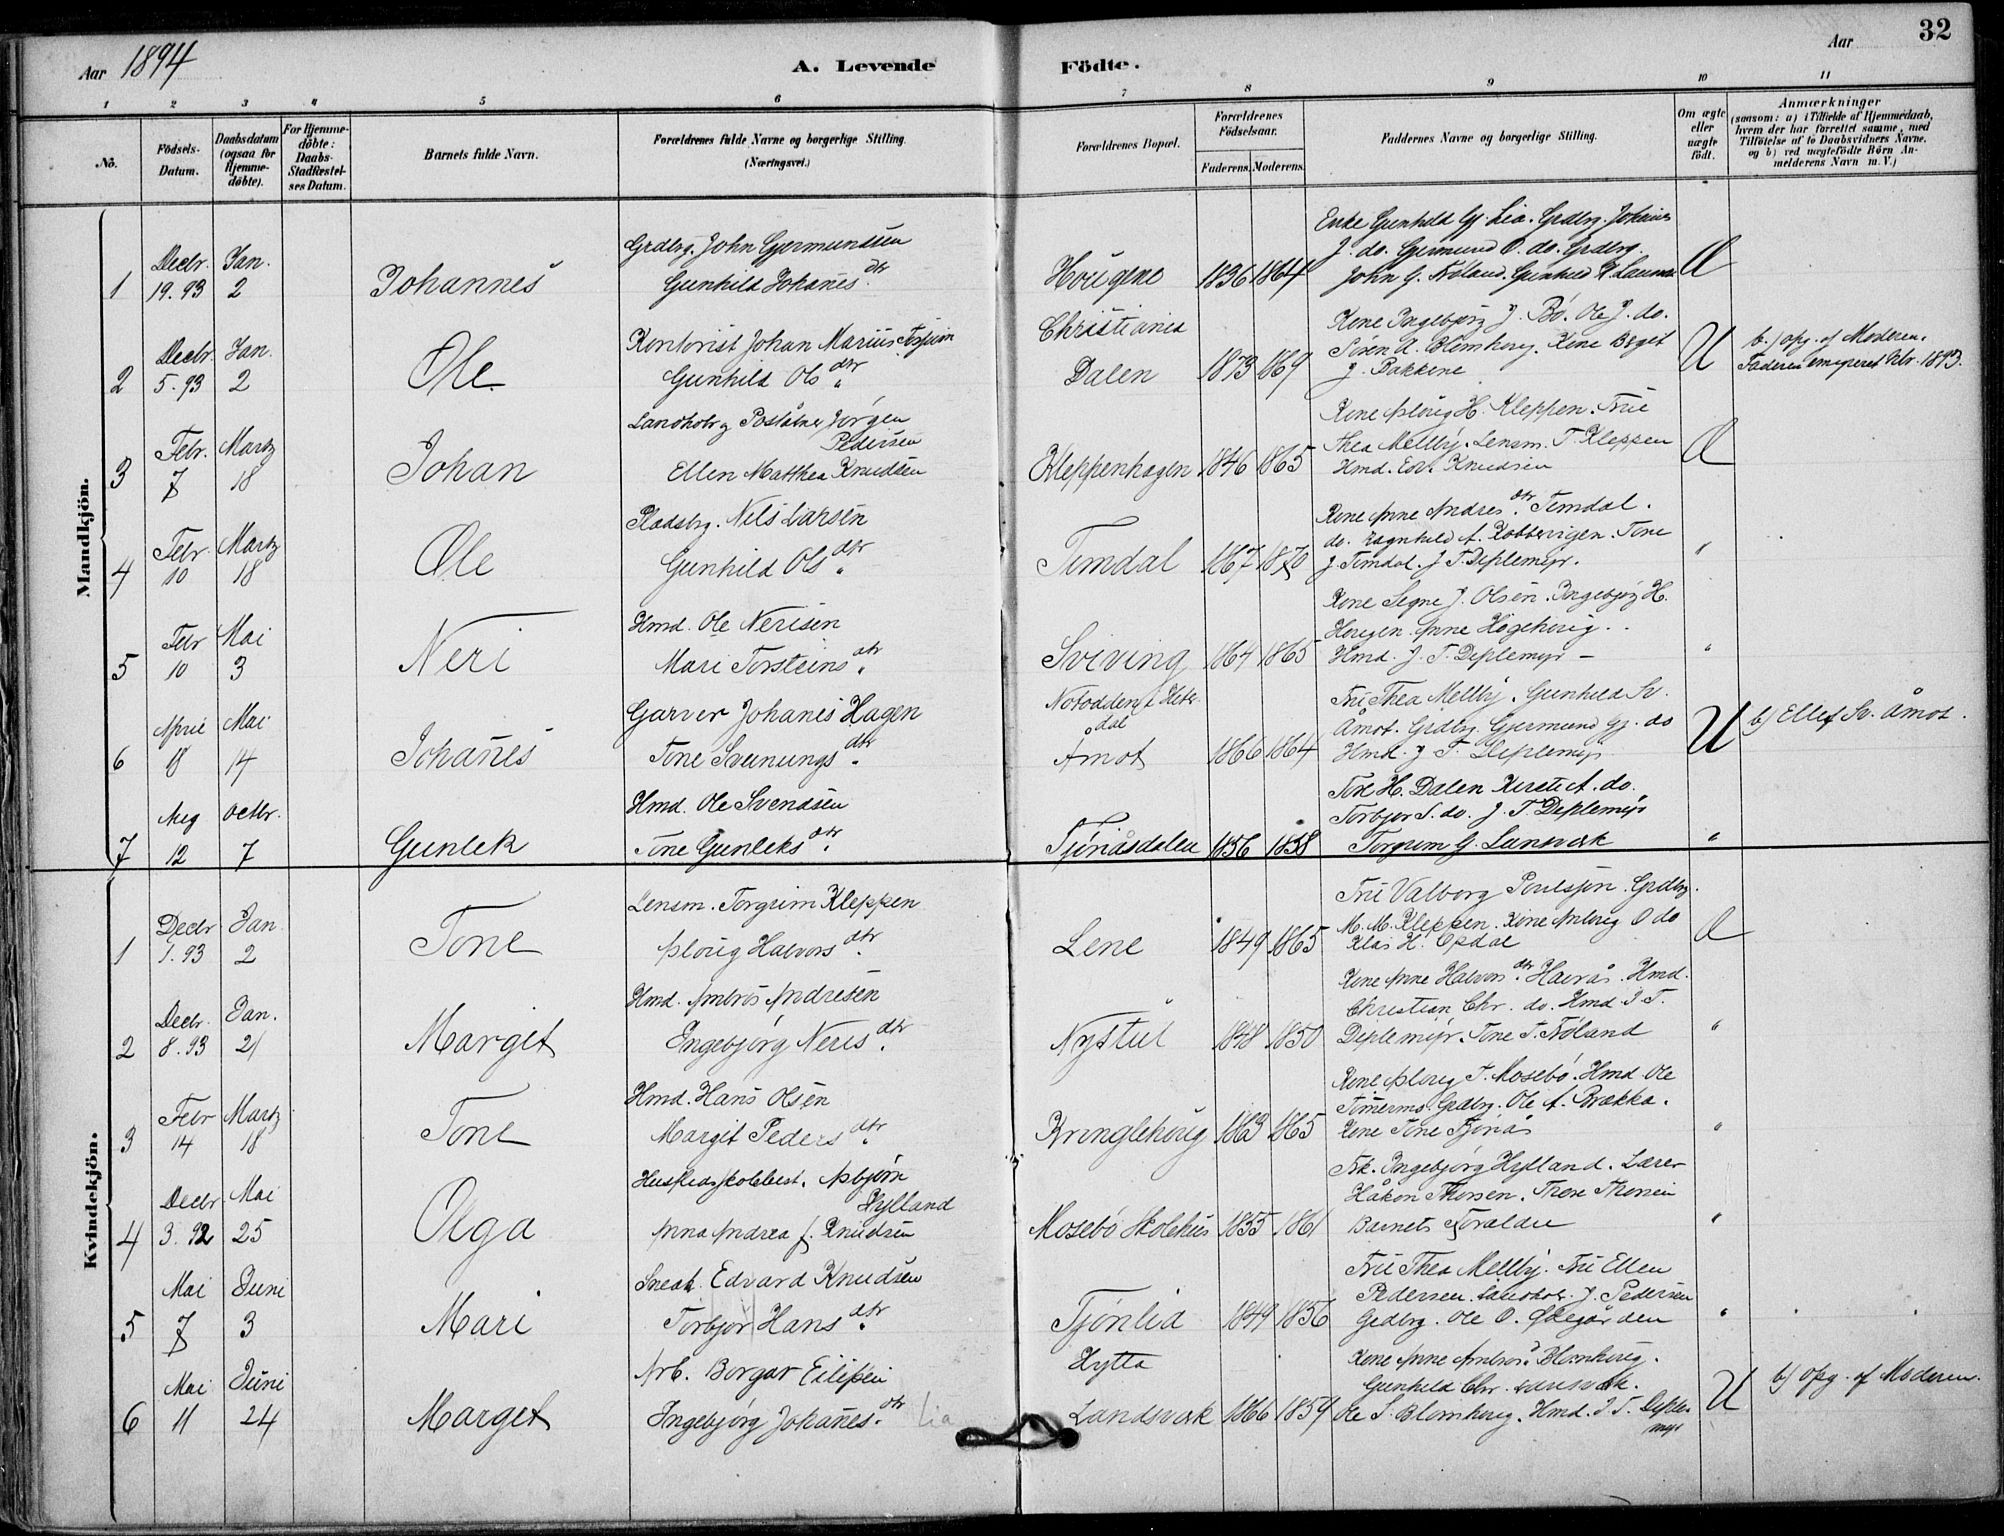 Aar 1894
A. Levende Födte.
Aar 32
1 2 3 4 5 6 7 8 9 10 11
No.
Födsels-Datum.
Daabsdatum (ogsaa for Hjemme-döbte).
For Hjemme-döbte: Daabs-Stadfæstel-ses Datum.
Barnets fulde Navn.
Forældrenes fulde Navne og borgerlige Stilling.
(Næringsvei.)
Forældrenes Bopæl.
Forældrenes Födselsaar.
Faderens. Moderens.
Faddernes Navne og borgerlige Stilling.
Om ægte eller uægte født.
Anmærkninger
(saasom: a) i Tilfælde af Hjemmedaab,
hvem der har forrettet samme, med
Tilföielse af to Daabsvidners Navne,
og b) ved uægtefödte Börn An-
melderens Navn m. V.)
Mandkjön.
1 Decbr. 19. 93 Jan. 2 Johannes
Grdbrg. John Gjermundsen
Gunhild Johanes dtr.
Hougene 1836 1864
Enke Gunhild Gj. Lia. Grdbrg. Johanes
J. do. Gjermund O. do. Grdbrg.
John G. Nøland. Gunhild
Æ
2 Decbr. 5. 93 Jan. 2 Ole
Kontorist Johan Marius
Gunhild Ols dtr.
Christiania
Dalen 1873 1869
Kone Ingebjørg J. Bø. Ole J. do.
Søren A. Blomhoug. Kone Birgit
J. Bakkene
U
b.) opg. af Moderen.
Faderen emigreret Octbr. 1893.
3 Febr. 7 Martz 18 Johan
Landhdlr. og Poståbner Jørgen
Pedersen
Ellen Matthea Knudsen
Kleppenhagen 1846 1865
Kone Asloug H. Kleppen. Frue
Thea Mellby. Lensm. T. Kleppen
Hmd. Edv. Knudsen
Æ
4 Febr. 10 Martz 18 Ole
Pladsbrg. Nils Larsen
Gunhild Ols dtr.
Timdal 1867 1870
Kone Anne Andres dtr. Timdal.
do. Ragnhild A. Kobbervigen. Tone
J. Timdal. J. T. Deplemyr.
"
5 Febr 10 Mai 3 Neri
Hmd. Ole Nerisen
Mari Torsteins dtr.
Sviving 1864 1865
Kone Signe J. Olsen. Ingebjørg H.
Hougen. Anne Høgehoug.
Hmd. J. T. Deplemyr –
"
6 April 18 Mai 14 Johanes
Garver Johanes Hagen
Tone Svenungs dtr.
Notodden i Hitterdal
Åmot 1866 1864
Fru Thea Mellby. Gunhild Sv.
Åmot. Grdbrg. Gjermund Gj. do
Hmd. J. T. Deplemyr
U
b) Ellef Sv. Åmot.
7 Aug 12 Octbr. 7 Gunlek
Hmd. Ole Svendsen
Tone Gunleks dtr.
Tjønåsdalen 1856 1858
Tone H. Dalen Kirsti A. do.
Torbjør S. do. J. T. Deplemyr
Torgrim G. Landsvæk
"
Kvindekjön.
1 Decbr 1. 93 Jan. 2 Tone
Lensm. Torgrim Kleppen
Asloug Halvors dtr.
Lene 1849 1865
Fru Valborg Poulsson. Grdbrg.
M. M. Kleppen. Kone Asloug O do
Klas H. Opdal
Æ
2 Decbr. 8. 93 Jan. 21 Margit
Hmd. Ambros Andresen
Engebjørg Neris dtr.
Nystul 1848 1850
Kone Anne Halvors dtr. Haverås. Hmd.
Christian Chr. do. Hmd. J. T.
Deplemyr. Tone T. Nøland
"
3 Febr 14 Martz 18 Tone
Hmd. Hans Olsen
Margit Peders dtr.
Kringlehoug 1863 1865
Kone Asloug T. Mosebø. Hmd Ole
Grdbrg. Ole A. Brække.
Kone Tone Tjønås
"
4 Decbr 3. 92 Mai 25 Olga
Husflidsskolebest. Asbjørn
Hylland
Anna Andrea f. Knudsen
Mosebø Skolehus 1855 1861
Frk. Ingebjørg Hylland. Lærer
Håkon Thorsen. Barnets Forældre
"
5 Mai 7 Juni 3 Mari
Edvard Knudsen
Torbjør Hans dtr.
Tjønlid 1849 1856
Fru Thea Mellby. Fru Ellen
Pedersen. Landhdlr. J. Pedersen
Grdbrg. Ole O. Økegården
"
6 Mai 11 Juni 24 Marget
Arb. Borgar Eilifsen
Ingebjørg Johanes dtr. Lia
Hytta
Landsvæk 1866 1859
Kone Anne Ambros Blomhoug.
Gunhild Chr. Landsvæk.
Ole S. Blomhoug. Hmd. J. T. Deple-
myr
U
b) opg. af Moderen.